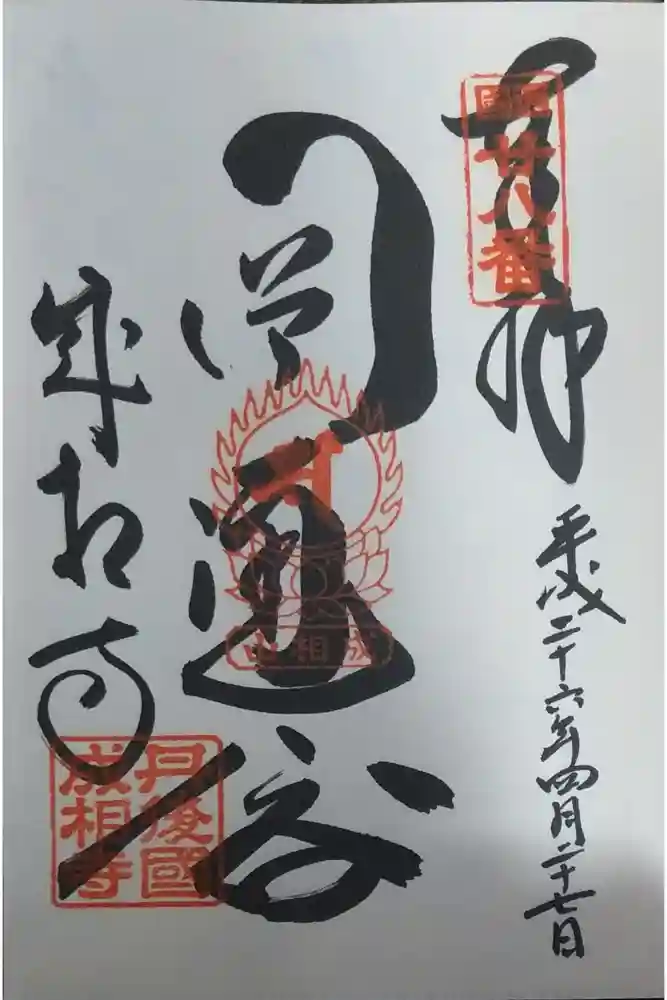 奉拝
西國
廿八番
平成二十六年四月二十七日
成相山
成相寺
丹後國
成相寺